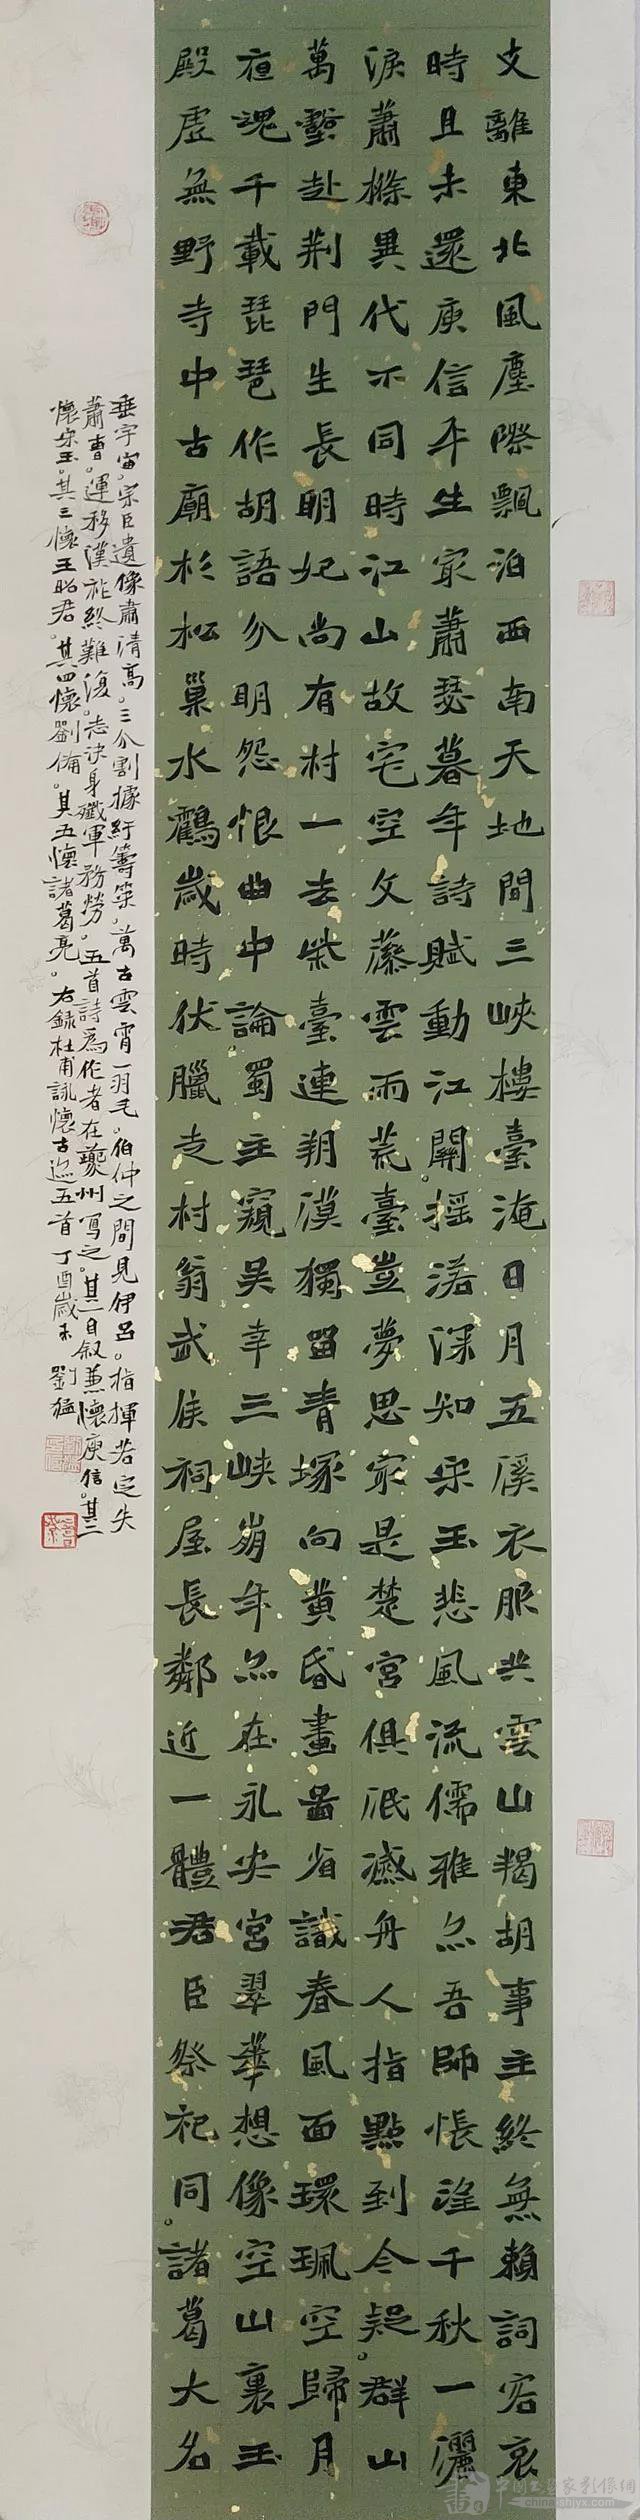 支離東北風塵際飄泊西南天地間三峽樓臺淹日月五溪衣服共雲山羯胡事主終無賴詞客哀
時且未還庾信平生最蕭瑟暮年詩賦動江關。搖落深知宋玉悲風流儒雅亦吾師悵望千秋一灑
淚蕭條異代不同時江山故宅空文藻雲雨荒臺豈夢思最是楚宮俱泯滅舟人指點到今疑。群山
萬壑赴荆門生長明妃尚有村一去紫臺連朔漠獨留青塚向黃昏畫圖省識春風面環珮空歸月
夜魂千載琵琶作胡語分明怨恨曲中論蜀主窺吳幸三峽崩年亦在永安宮翠華想像空山裏玉
殿虛無野寺中古廟杉松巢水鶴歲時伏臘走村翁武侯祠屋長鄰近一體君臣祭祀同。諸葛大名
垂宇宙。宗臣遺像肅清高。三分割據紆籌策，萬古雲霄一羽毛。伯仲之間見伊呂。指揮若定失
蕭曹。運移漢祚終難復。志決身殲軍務勞。五首詩爲作者在夔州寫之。其一自叙兼懷庾信。其二
懷宋玉。其三懷王昭君。其四懷劉備。其五懷諸葛亮。右録杜甫詠懷古迹五首丁酉歲末 劉猛